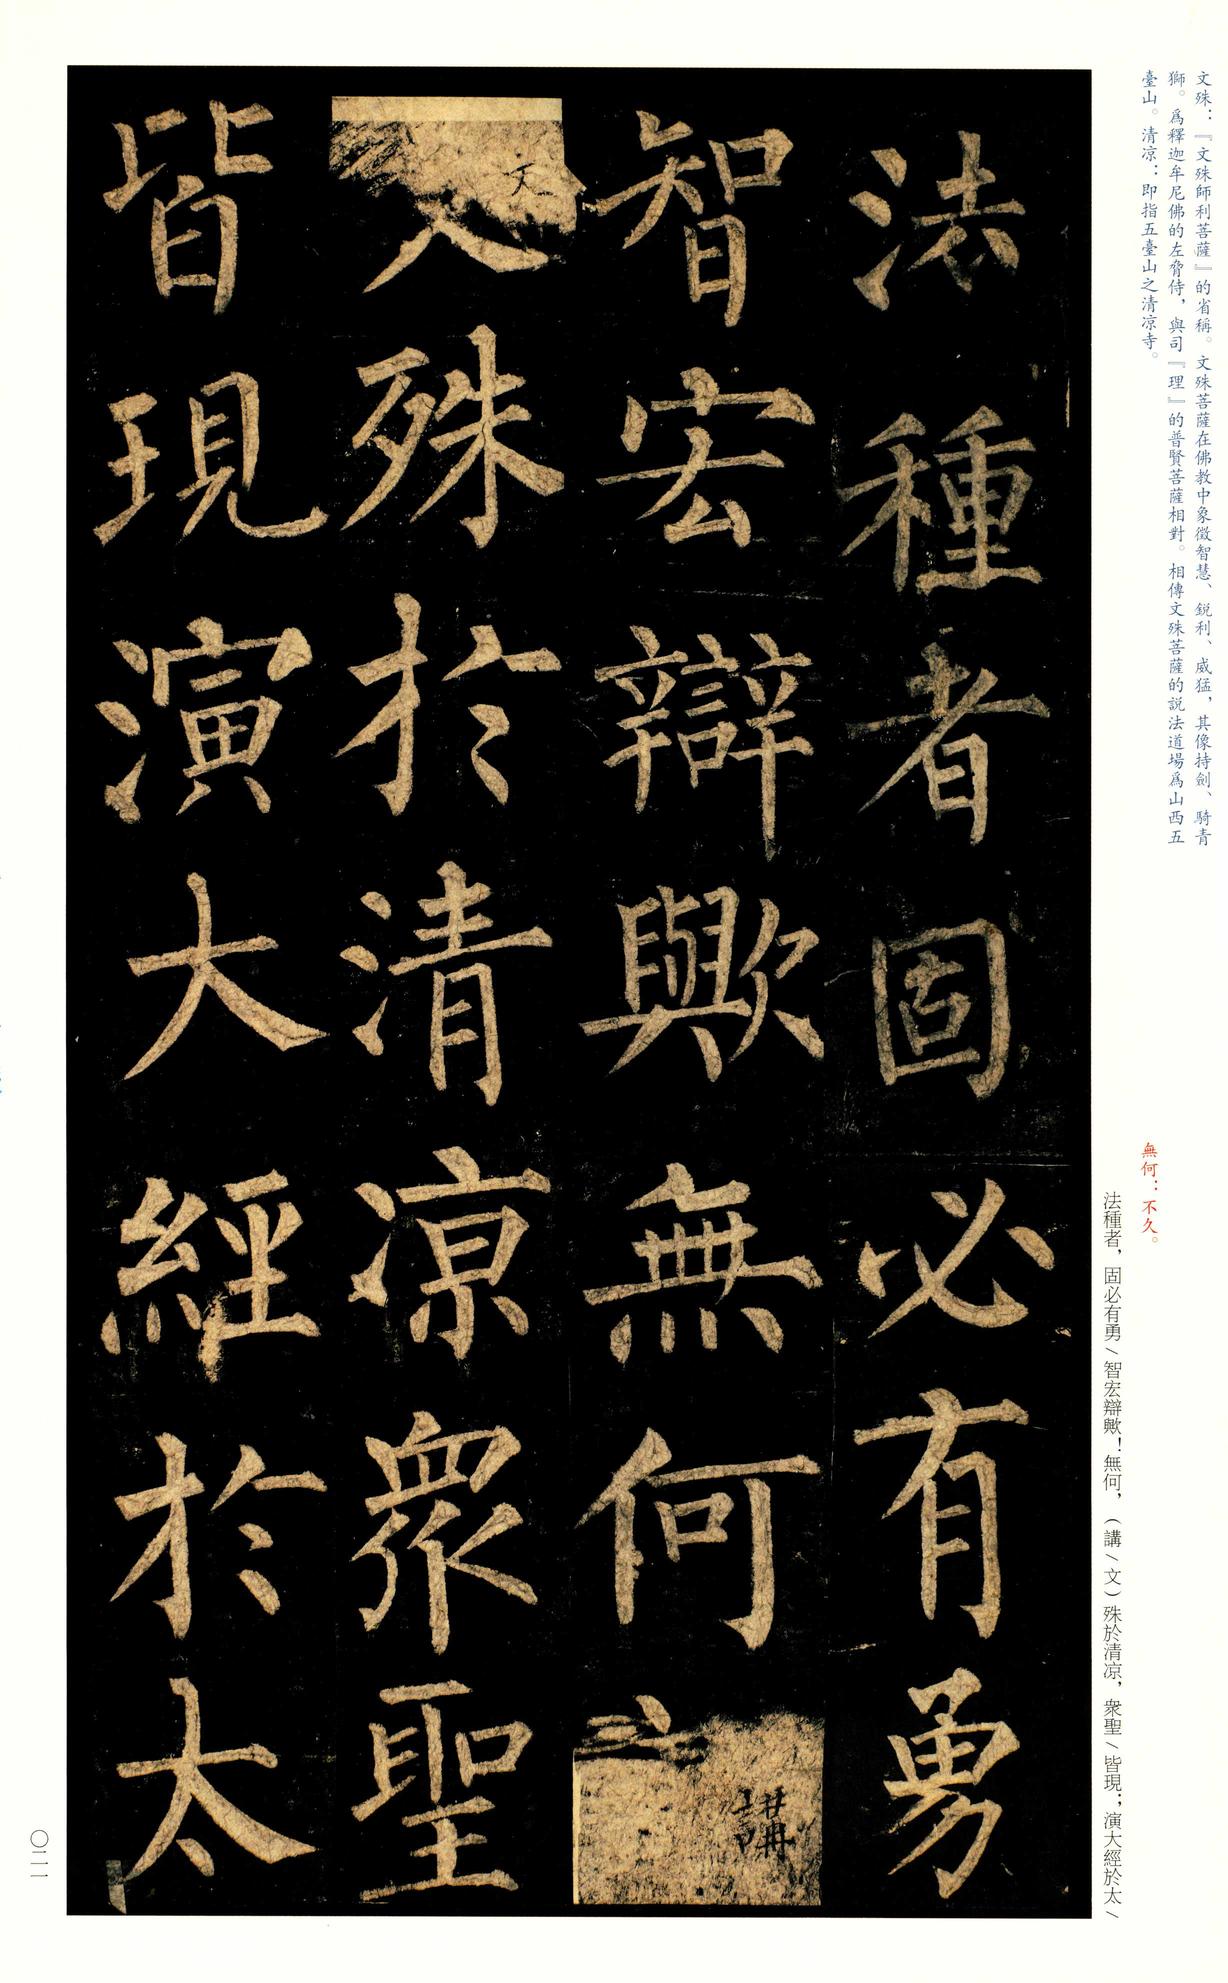 文殊：『文殊師利菩薩』的省稱。文殊菩薩在佛教中象徵智慧、鋭利、威猛，其像持劍、騎青
獅。爲釋迦牟尼佛的左脅侍，與司『理』的普賢菩薩相對。相傳文殊菩薩的説法道場爲山西五
臺山。清凉：即指五臺山之清凉寺。
無何：不久。
法種者，固必有勇／智宏辯歟！無何，（講／文）殊於清凉，衆聖／皆現；演大經於太／
法種者固必有勇
智宏辯歟無何講
文殊於清凉衆聖
皆現演大經於太
〇二一